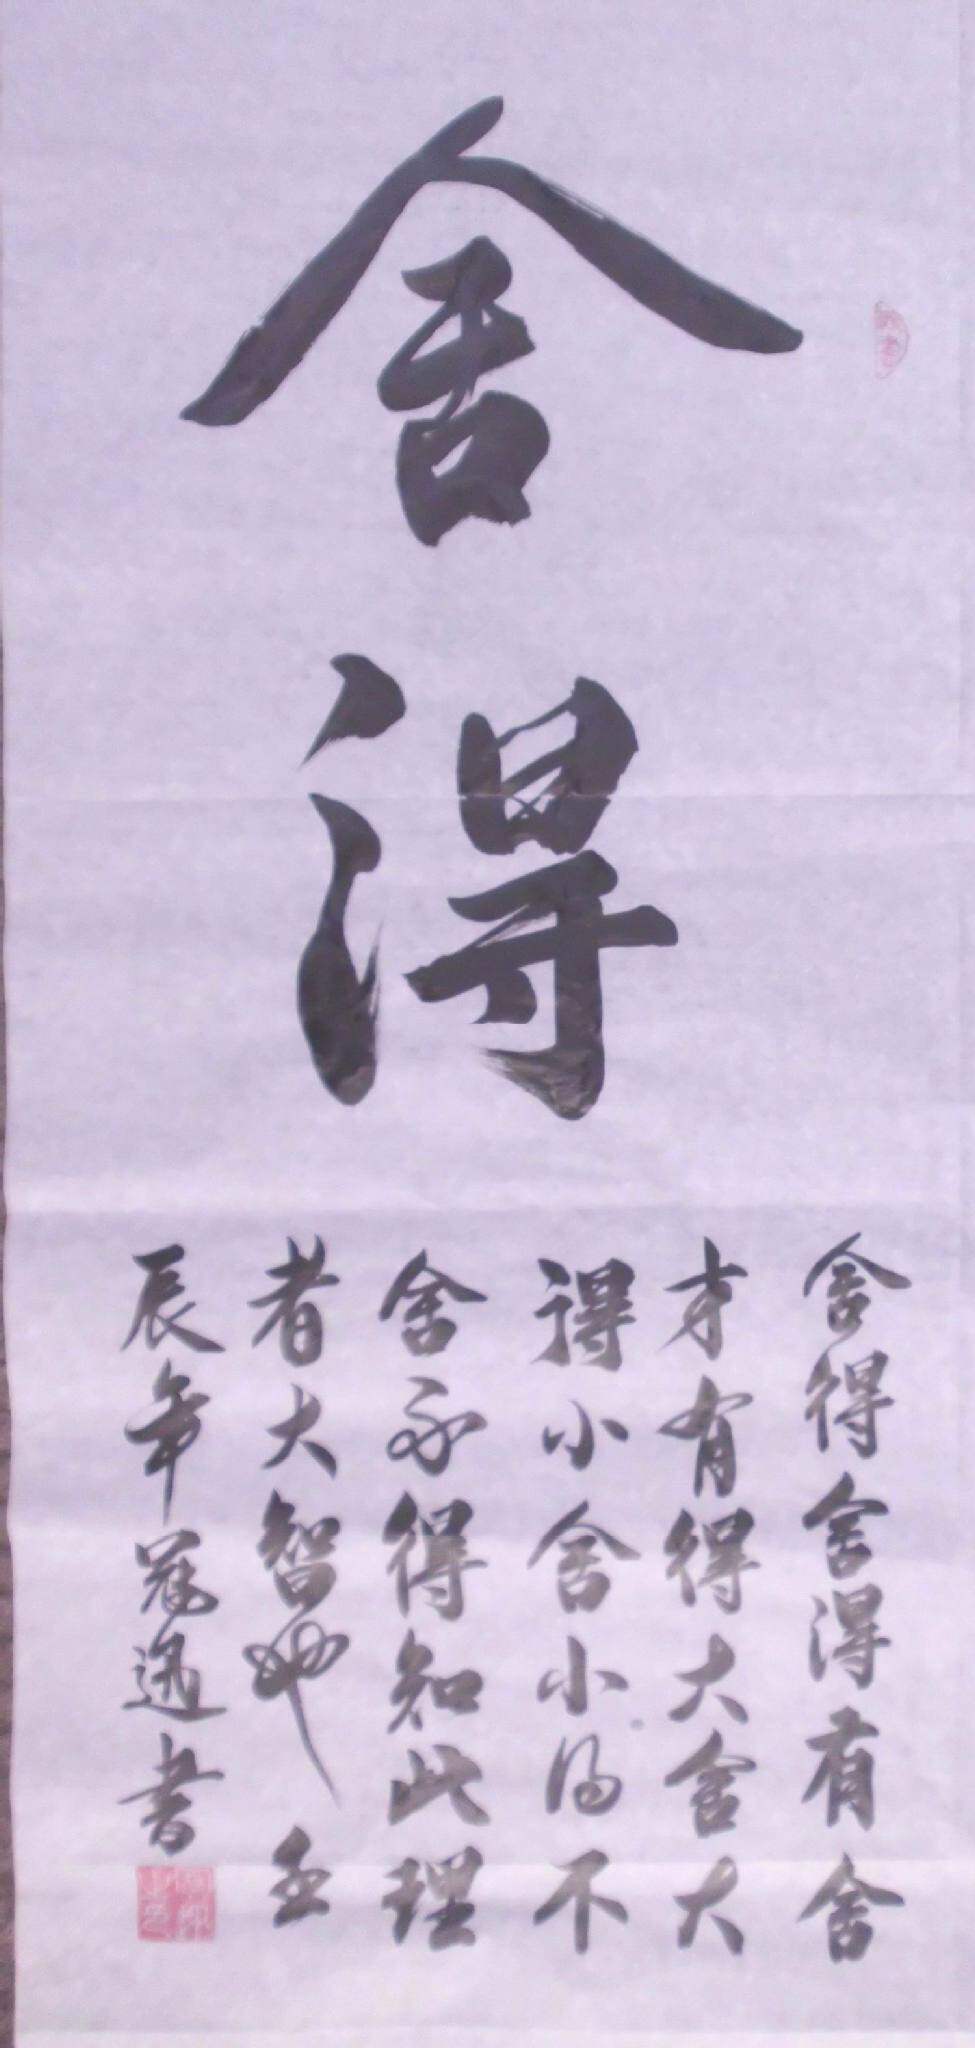 舍得
舍得舍得有舍
才有得大舍大
得小舍小得不
舍不得知此理
者大智也壬
辰年冠通书